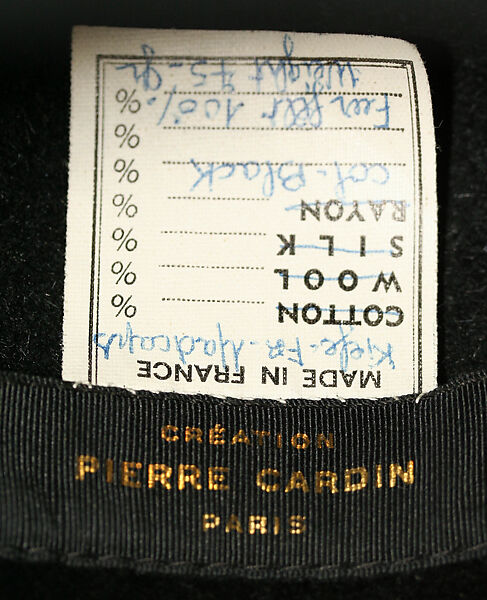 MADE IN FRANCE
COTTON %
WOOL %
SILK %
RAYON %
Col-Black %
%
Fur felt 100% %
Weight 75-gr
CRÉATION
PIERRE CARDIN
PARIS